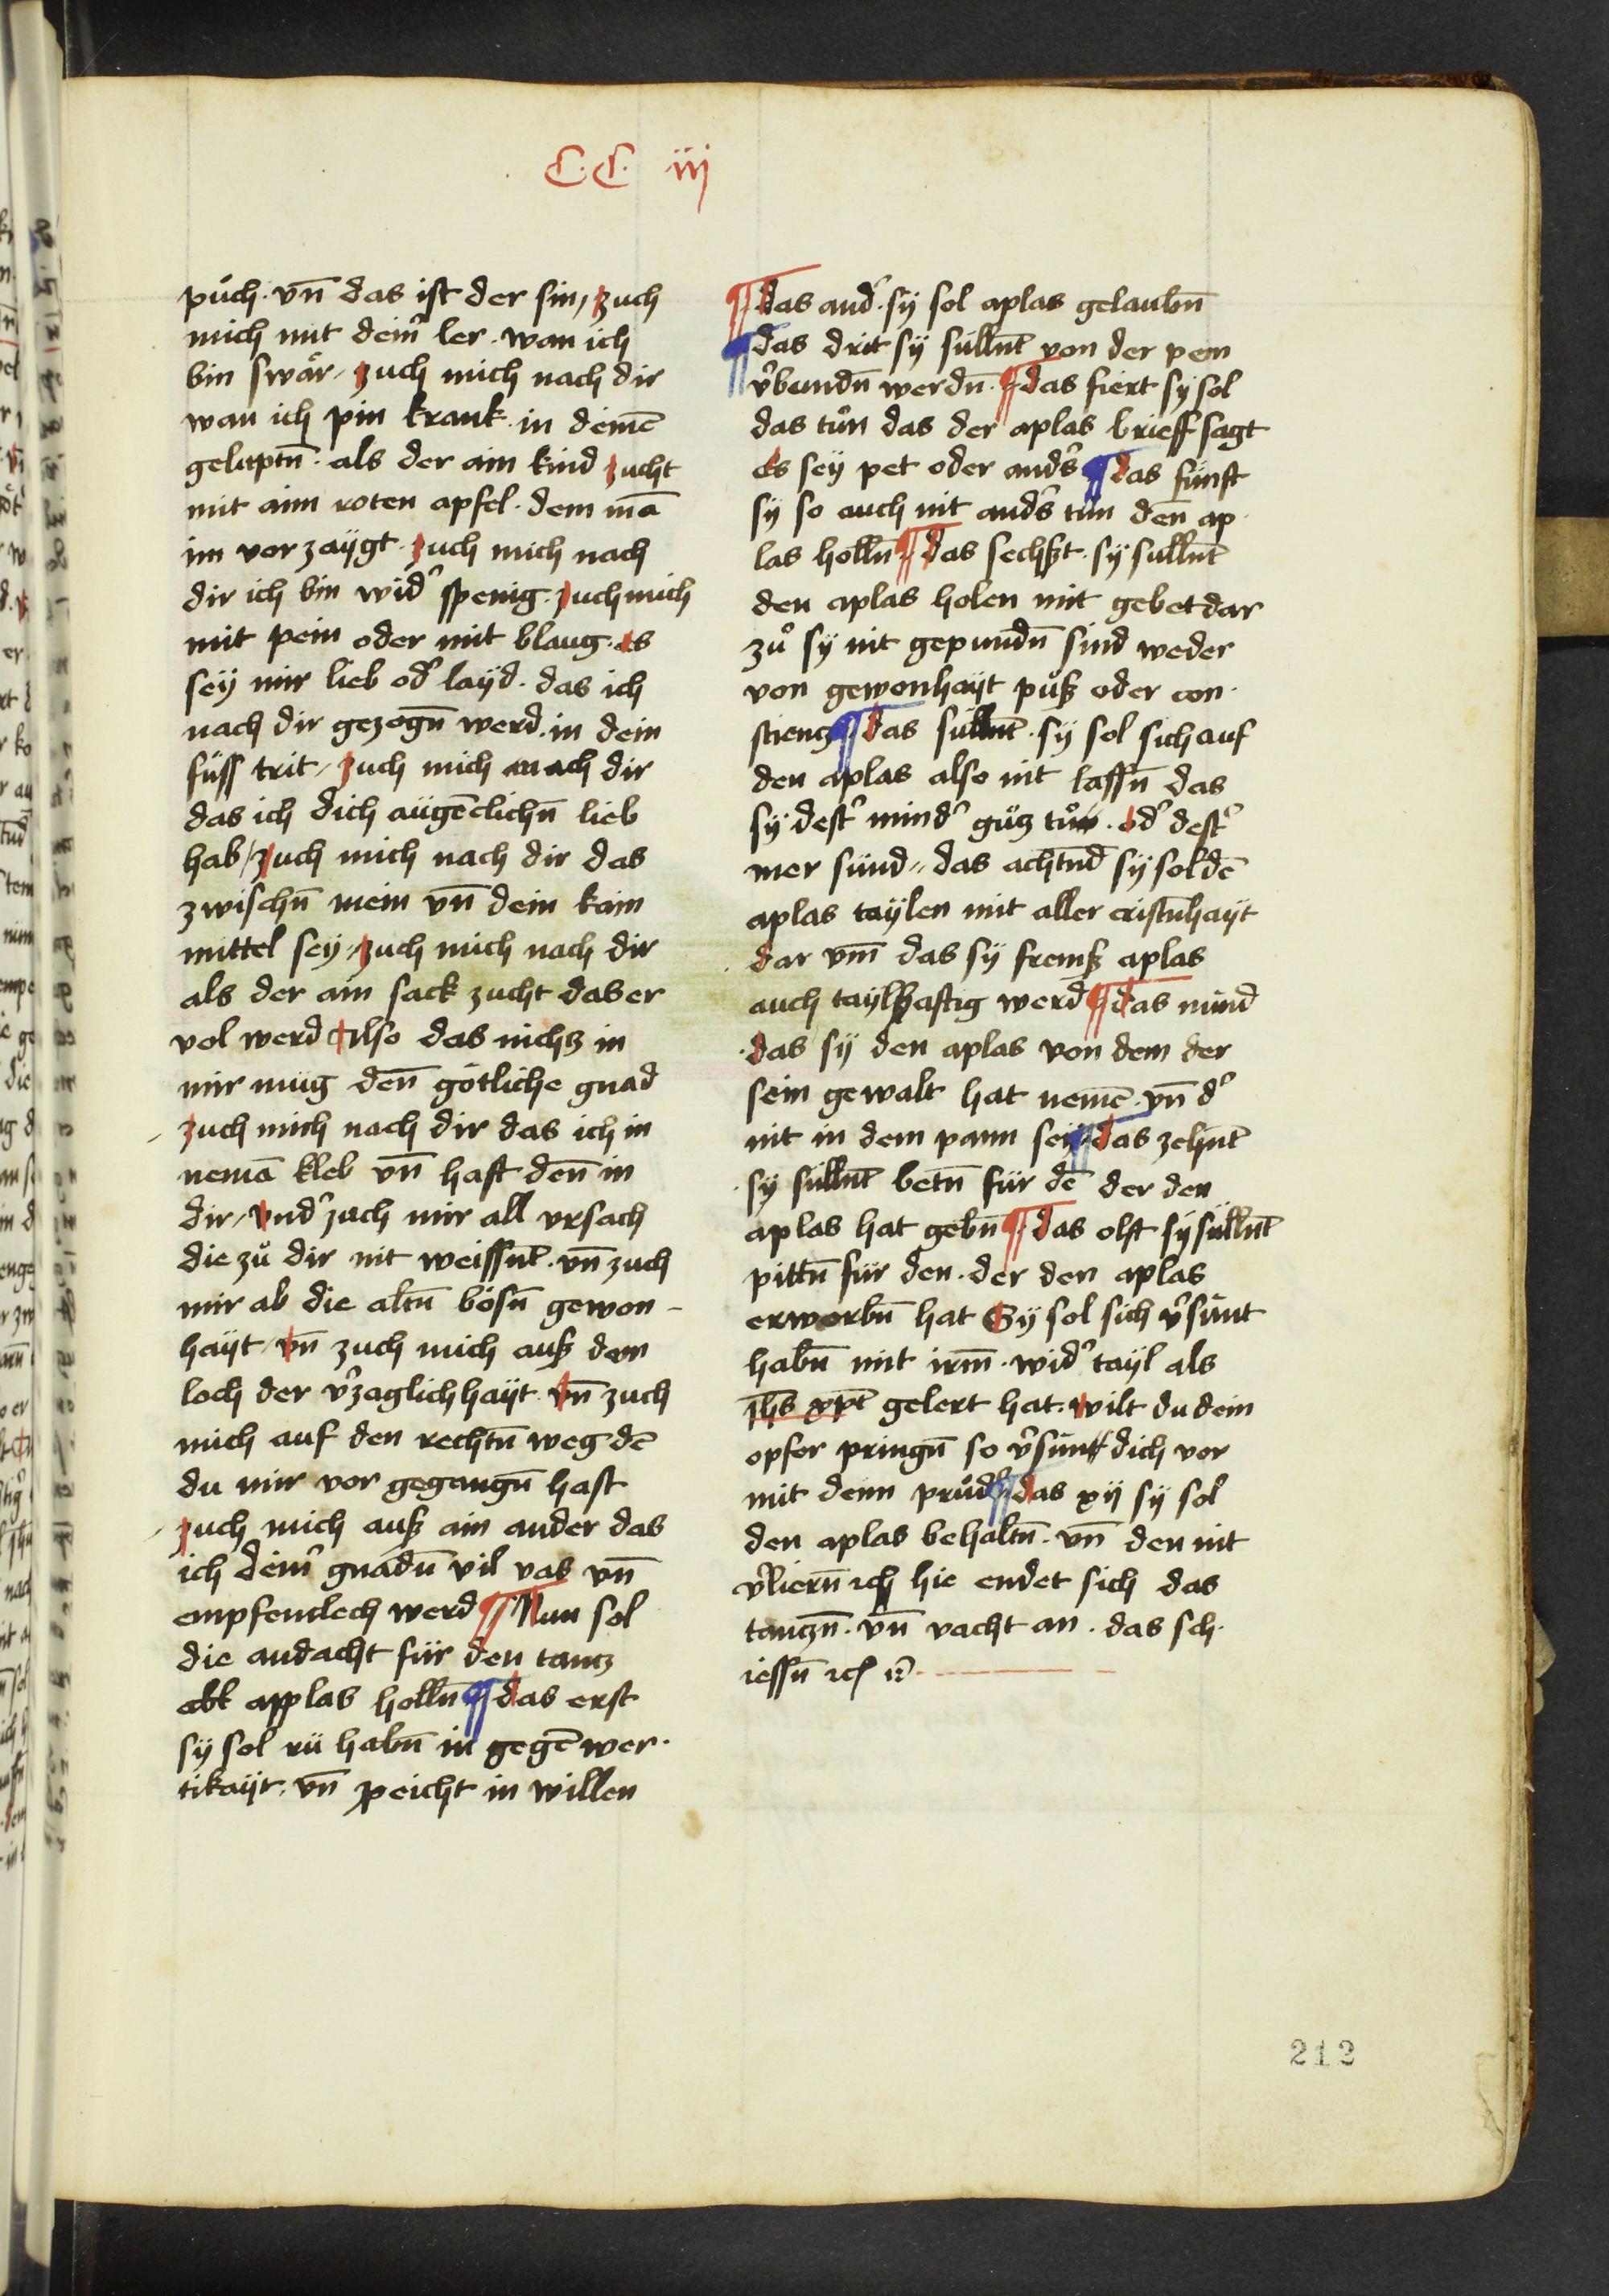 C.C. iij
půch. vn̄ das ist der sin / zuch
mich mit deinͬ ler. wan ich
bin swår / zuch mich nach dir
wan ich pin krank. in deinē
geluptn̄. als der ain kind zucht
mit aim roten apfel. dem mā
im vor zaÿgt. zuch mich nach
dir ich bin widͬ spenig. zuch mich
mit pein oder mit blang. es
seÿ mir lieb odͬ laÿd. das ich
nach dir gezogn̄ werd. in dein
füss trit / zuch mich nach dir
das ich dich augēclichn̄ lieb
hab / zuch mich nach dir das
zwischn̄ mein vn̄ dein kain
mittel seÿ / zuch mich nach dir
als der ain sack zucht das er
vol werd Also das nichz in
mir müg den̄ götliche gnad
zuch mich nach dir das ich in
nemā kleb vn̄ haft den̄ in
dir / vndͬ zuch mir all vrsach
die zů dir nit weissn̄t. vn̄ zuch
mir ab die altn̄ bösn̄ gewon-
haÿt / vn̄ zuch mich auß dem
loch der vͬzaglichhaÿt. vn̄ zuch
mich auf den rechtn̄ weg dē
du mir vor gegangn̄ hast
zuch mich auß ain ander das
ich deinͬ gnadn̄ vil vas vn̄
empfenclech werd ¶ Nun sol
die andacht für den tancz
abt applas holln̄ ¶ das erst
sÿ sol rü habn̄ in gegēwer.
tikaÿt. vn̄ peicht in willen
¶ das andͬ. sÿ sol aplas gelaubn̄
¶ das drit sÿ sülln̄t von der pen
vͬbundn̄ werdn̄. ¶ das fiert sÿ sol
das tůn das der aplas brieff sagt
es seÿ pet oder andͬs ¶ das fünft
sÿ so auch nit andͬs tůn den̄ ap.
las holln̄ ¶ das sechßt. sÿ sulln̄t
den aplas holen mit gebet dar
zů sÿ nit gepundn̄ sind weder
von gewonhaÿt půß oder con.
scienz ¶ das sülln̄t. sÿ sol sich auf
den aplas also nit lassn̄ das
sÿ destͬ mindͬ gůz tů. odͬ destͬ
mer sünd // das achtn̄d sÿ sol dē
aplas taÿlen mit aller cristn̄haÿt
dar vm̄ das sÿ fremß aplas
auch taÿlhaftig werd ¶ das nünd
das sÿ den aplas von dem der
sein gewalt hat nemē. vn̄ dͬ
nit in dem pann seÿ ¶ das zehn̄t
sÿ sülln̄t betn̄ für dē der den
aplas hat gebn̄ ¶ das olft sÿ sülln̄t
pittn̄ für den. der den aplas
erworbn̄ hat Sÿ sol sich vͬsünt
habn̄ mit irm̄. widͬ taÿl als
ih̄s xp̄t gelert hat. wilt du dein
opfer pringn̄ so vͬsünt dich vor
mit deim průdͬ ¶ das xij sÿ sol
den aplas behaltn̄. vn̄ den nit
vͬliern̄ ꝛc hie endet sich das
tanczn̄. vn̄ vacht an. das sch.
iessn̄ ꝛc
212